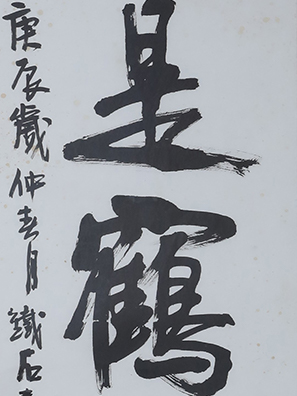 是鶴
庚辰歲仲春月鐵石